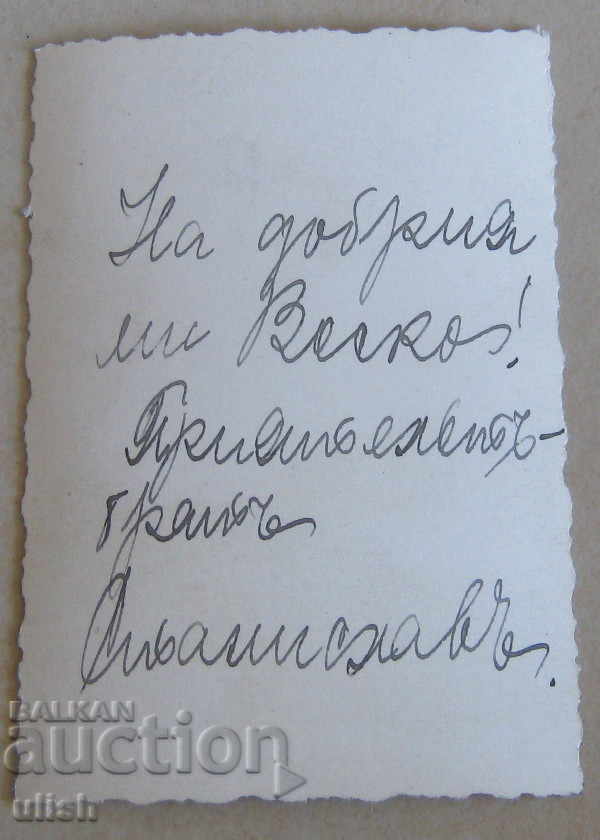 На добрия
ми Веско!
Приятельтъ-
братъ
Станиславъ.
BALKAN
auction
ulish